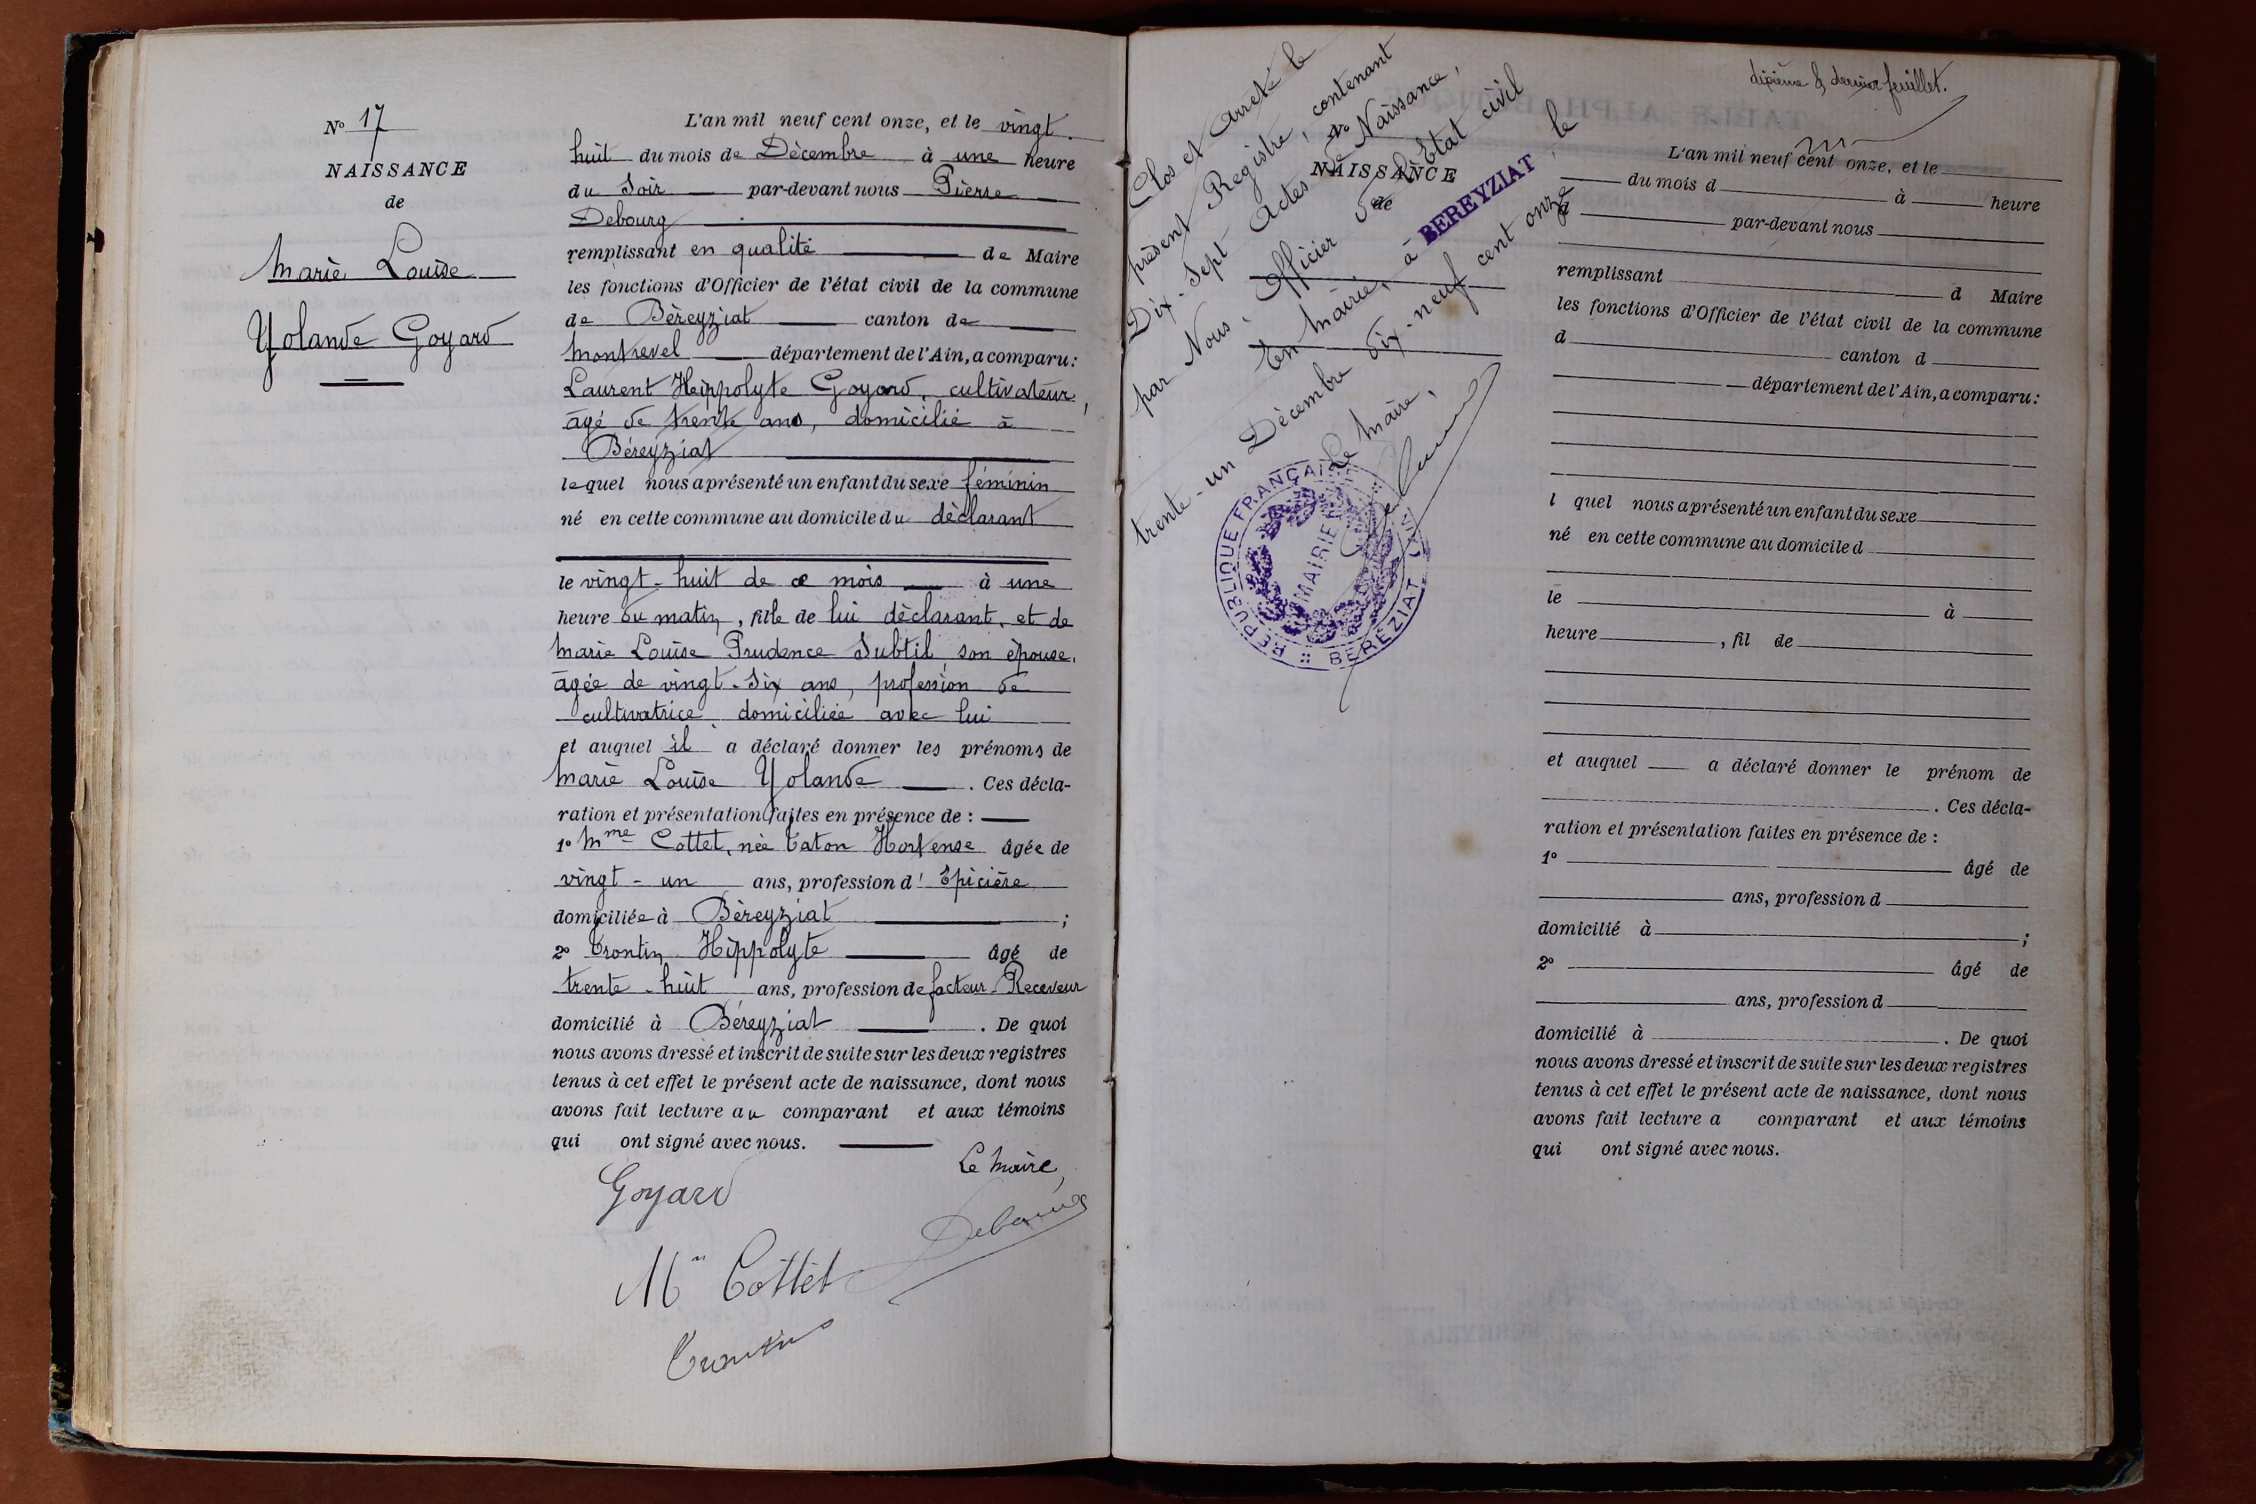 N° 17
NAISSANCE
de
Marie Louise
Yolande Goyard
L'an mil neuf cent onze, et le vingt
huit du mois de Décembre à une heure
du Soir par-devant nous Pierre
Debourg
remplissant en qualité de Maire
les fonctions d'Officier de l'état civil de la commune
de Béreyziat canton de
Montrevel département de l'Ain, a comparu:
Laurent Hippolyte Goyard, cultivateur,
âgé de trente ans, domicilié à
Béreyziat
lequel nous a présenté un enfant du sexe féminin
né en cette commune au domicile du déclarant
le vingt-huit de ce mois à une
heure du matin, fille de lui déclarant, et de
Marie Louise Prudence Subtil, son épouse,
âgée de vingt-six ans, profession de
cultivatrice, domiciliée avec lui
et auquel il a déclaré donner les prénoms de
Marie Louise Yolande. Ces décla-
ration et présentation faites en présence de:
1° Mme Cottet, née Caton Hortense âgée de
vingt-un ans, profession d'Epicière
domiciliée à Béreyziat;
2° Trontin Hippolyte âgé de
trente-huit ans, profession de facteur-Receveur
domicilié à Béreyziat. De quoi
nous avons dressé et inscrit de suite sur les deux registres
tenus à cet effet le présent acte de naissance, dont nous
avons fait lecture au comparant et aux témoins
qui ont signé avec nous.
Le Maire,
Goyard
Debourg
Mme Cottet
Trontin
Clos et arrêté le
présent Registre, contenant
Dix-Sept Actes de Naissance,
par Nous, Officier de l'État civil
En Mairie, à BEREYZIAT, le
trente-un Décembre dix-neuf cent onze
Le Maire,
Debourg
RÉPUBLIQUE FRANÇAISE
MAIRIE
BÉRÉZIAT (AIN)
N°
NAISSANCE
de
dixième & dernier feuillet.
L'an mil neuf cent onze, et le
du mois d à heure
d par-devant nous
remplissant d Maire
les fonctions d'Officier de l'état civil de la commune
d canton d
département de l'Ain, a comparu:
l quel nous a présenté un enfant du sexe
né en cette commune au domicile d
le à
heure, fil de
et auquel a déclaré donner le prénom de
. Ces décla-
ration et présentation faites en présence de:
1° âgé de
ans, profession d
domicilié à ;
2° âgé de
ans, profession d
domicilié à . De quoi
nous avons dressé et inscrit de suite sur les deux registres
tenus à cet effet le présent acte de naissance, dont nous
avons fait lecture a comparant et aux témoins
qui ont signé avec nous.